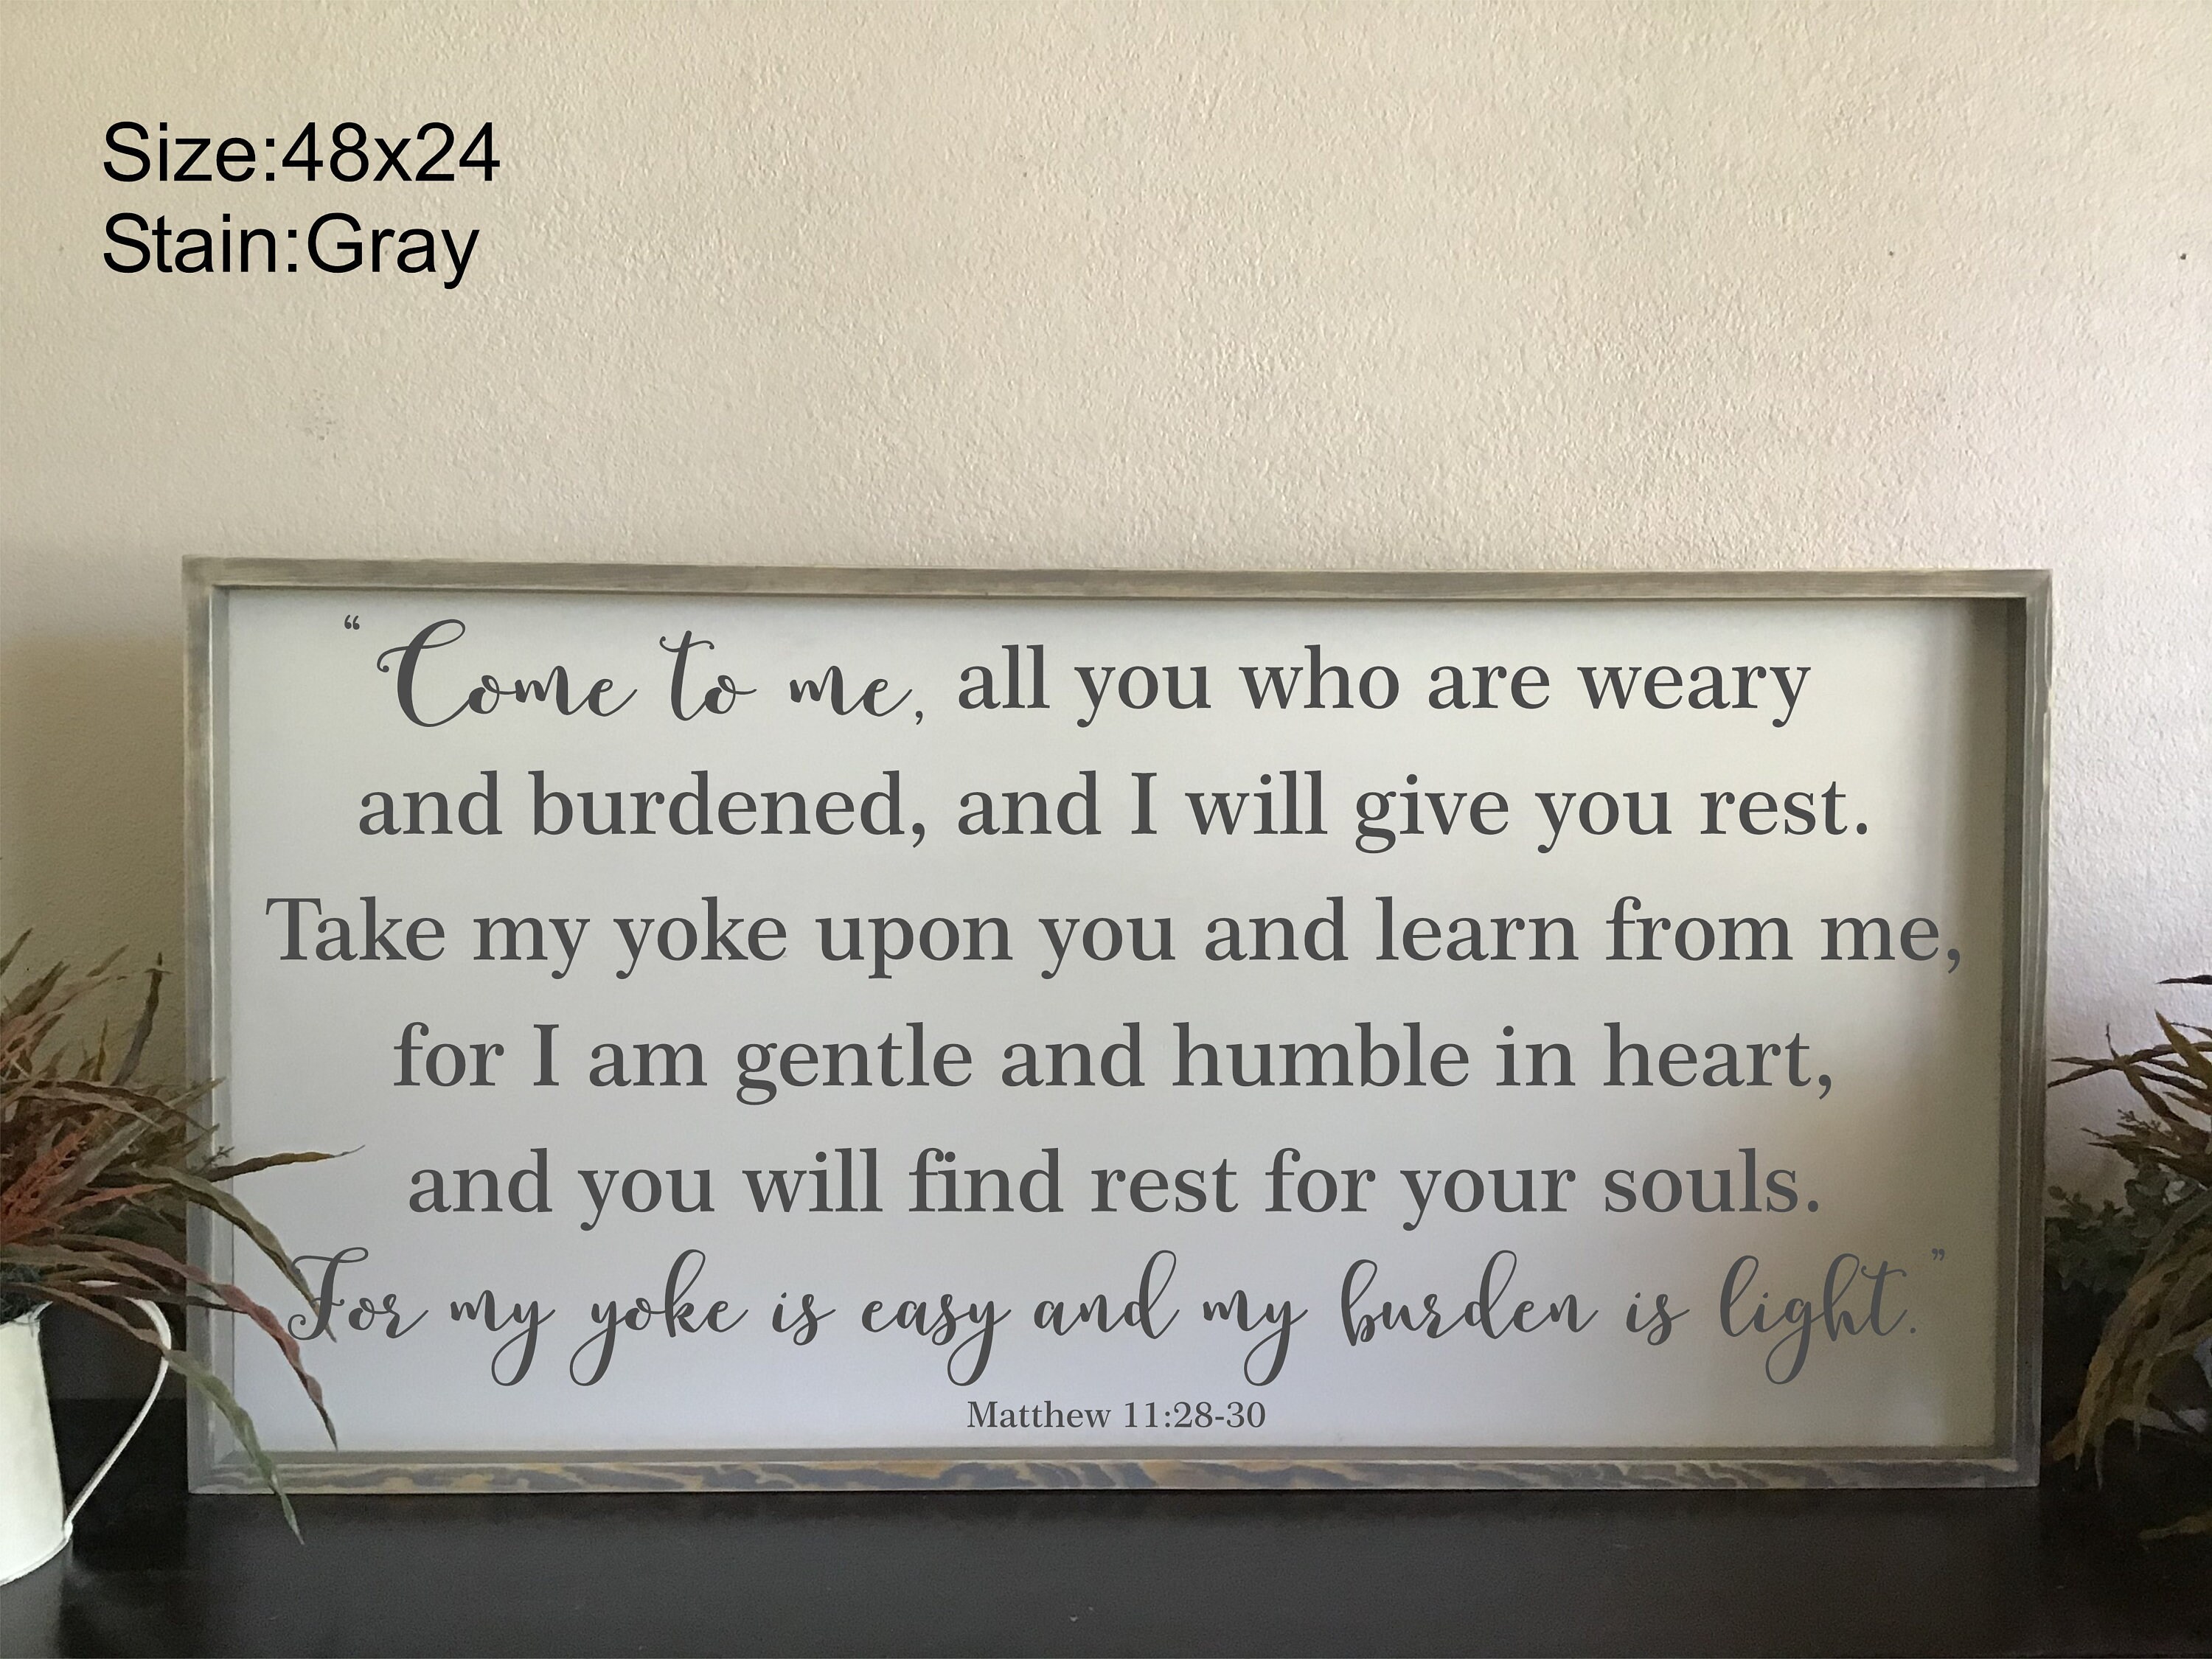 Size:48x24
Stain:Gray
“Come to me, all you who are weary
and burdened, and I will give you rest.
Take my yoke upon you and learn from me,
for I am gentle and humble in heart,
and you will find rest for your souls.
For my yoke is easy and my burden is light.”
Matthew 11:28-30